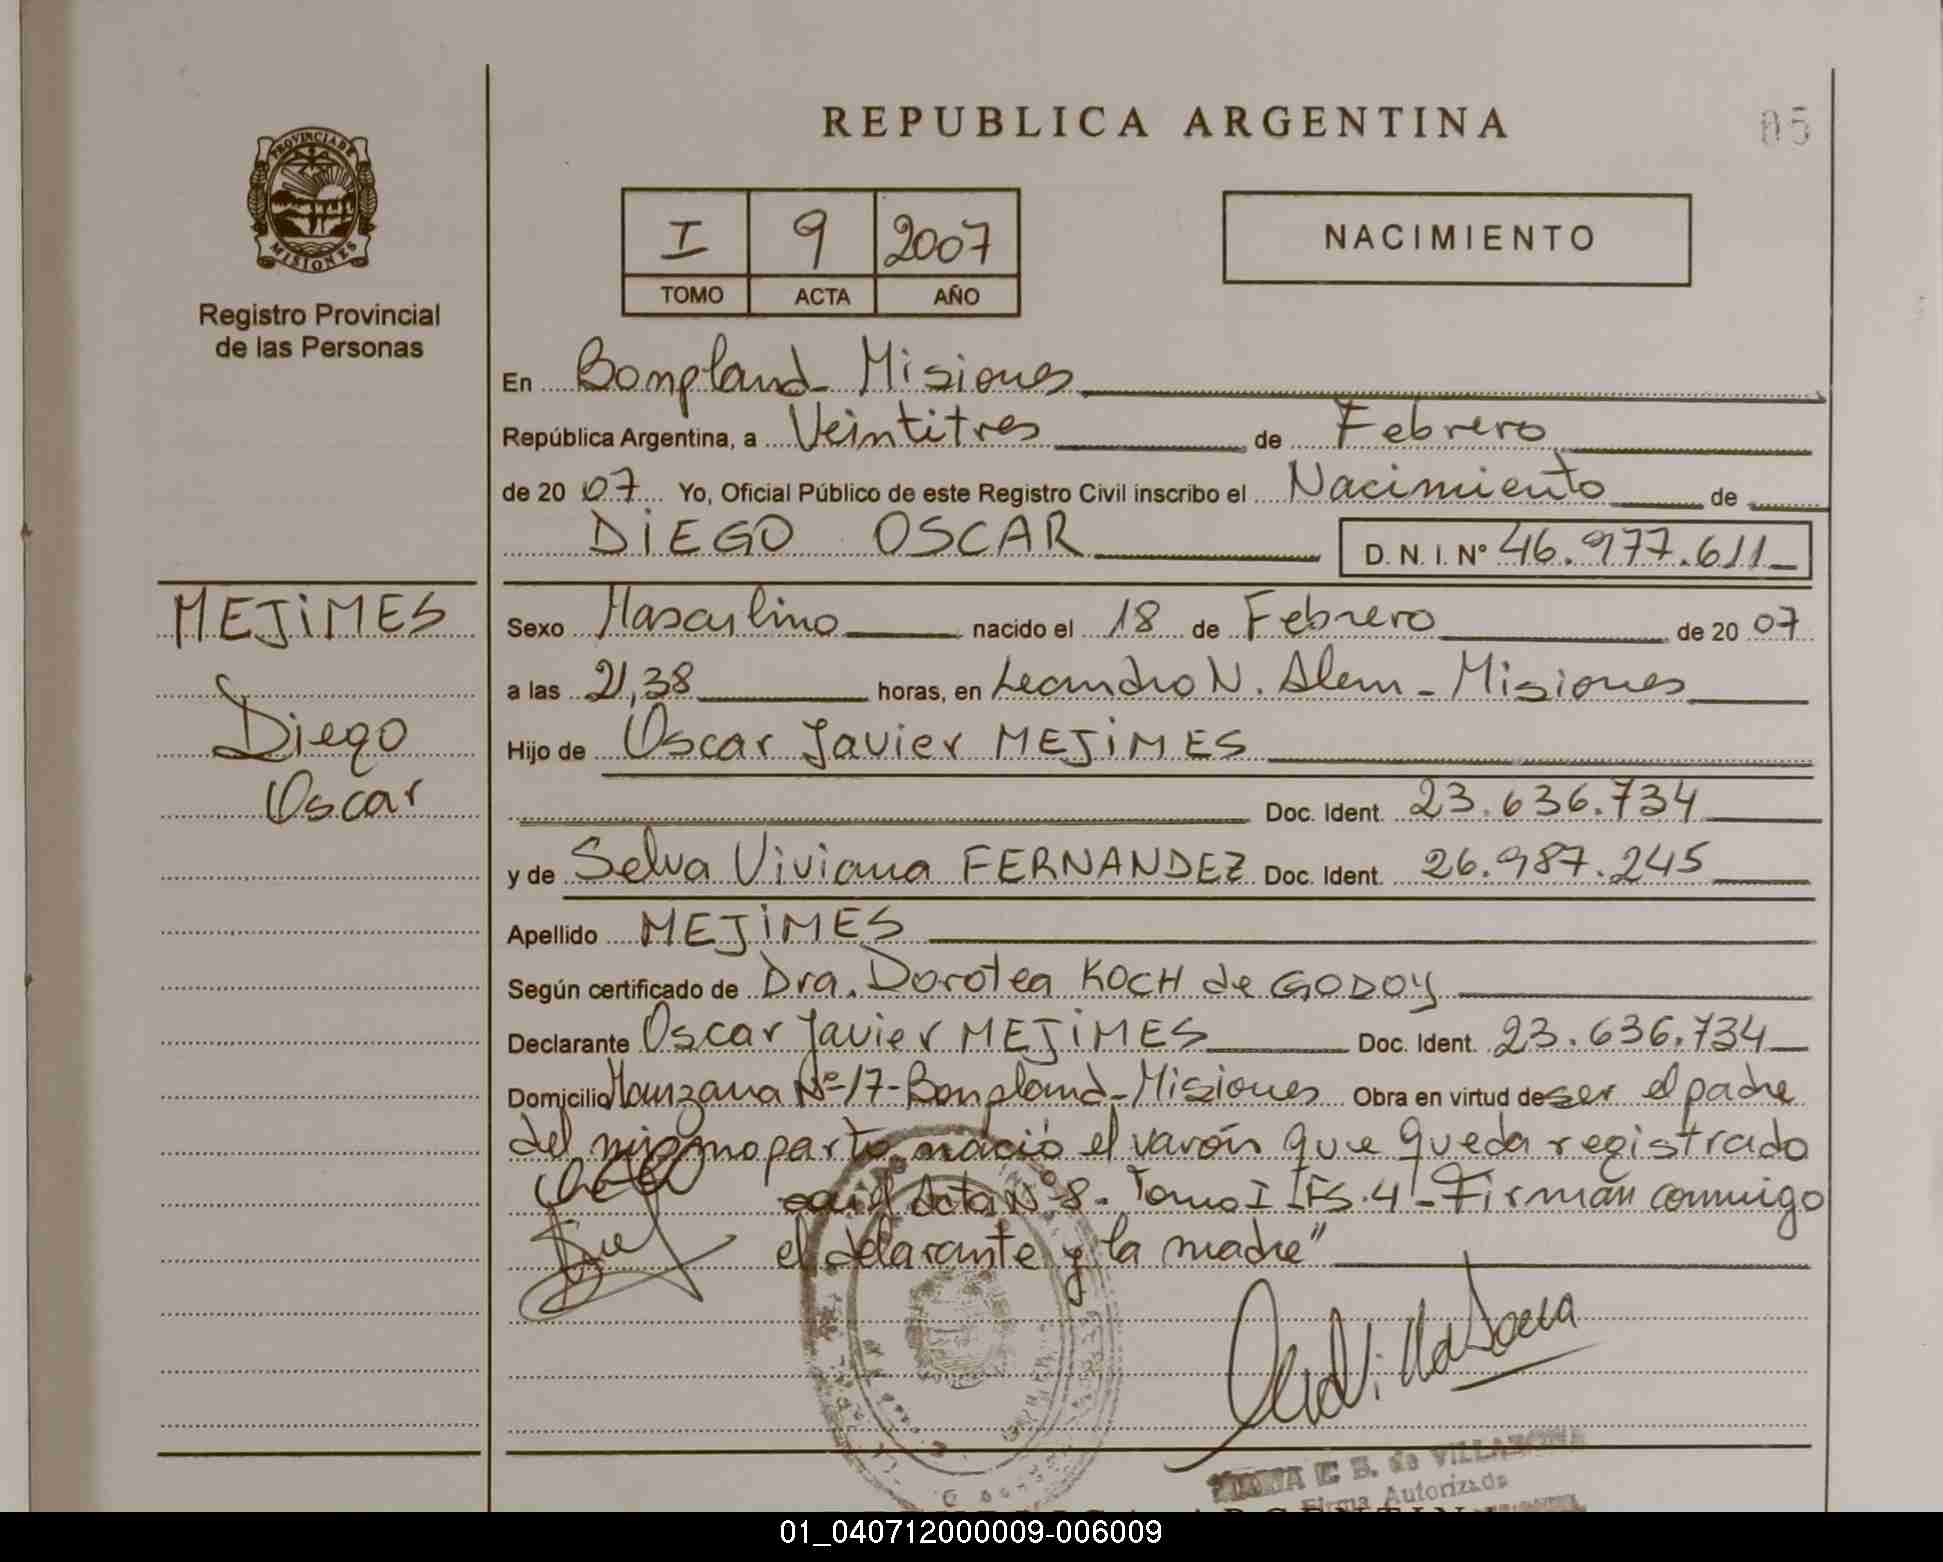 REPUBLICA ARGENTINA
05
PROVINCIA DE
MISIONES
Registro Provincial
de las Personas
I 9 2007
TOMO ACTA AÑO
NACIMIENTO
En Bompland - Misiones
República Argentina, a Veintitres de Febrero
de 20 07 Yo, Oficial Público de este Registro Civil inscribo el Nacimiento de
DIEGO OSCAR D. N. I. N° 46.977.611
MEJIMES
Diego
Oscar
Sexo Masculino nacido el 18 de Febrero de 20 07
a las 21,38 horas, en Leandro N. Alem - Misiones
Hijo de Oscar Javier MEJIMES
Doc. Ident. 23.636.734
y de Selva Viviana FERNANDEZ Doc. Ident. 26.987.245
Apellido MEJIMES
Según certificado de Dra. Dorotea KOCH de GODOY
Declarante Oscar Javier MEJIMES Doc. Ident. 23.636.734
Domicilio Manzana Nº 17 - Bompland - Misiones Obra en virtud de ser el padre
del mismo parto nació el varón que queda registrado
Acta Nº 8 - Tomo I - Fs. 4 - Firman conmigo
el delarante y la madre"
E. B. de VILLA
Firma Autorizada
01_040712000009-006009